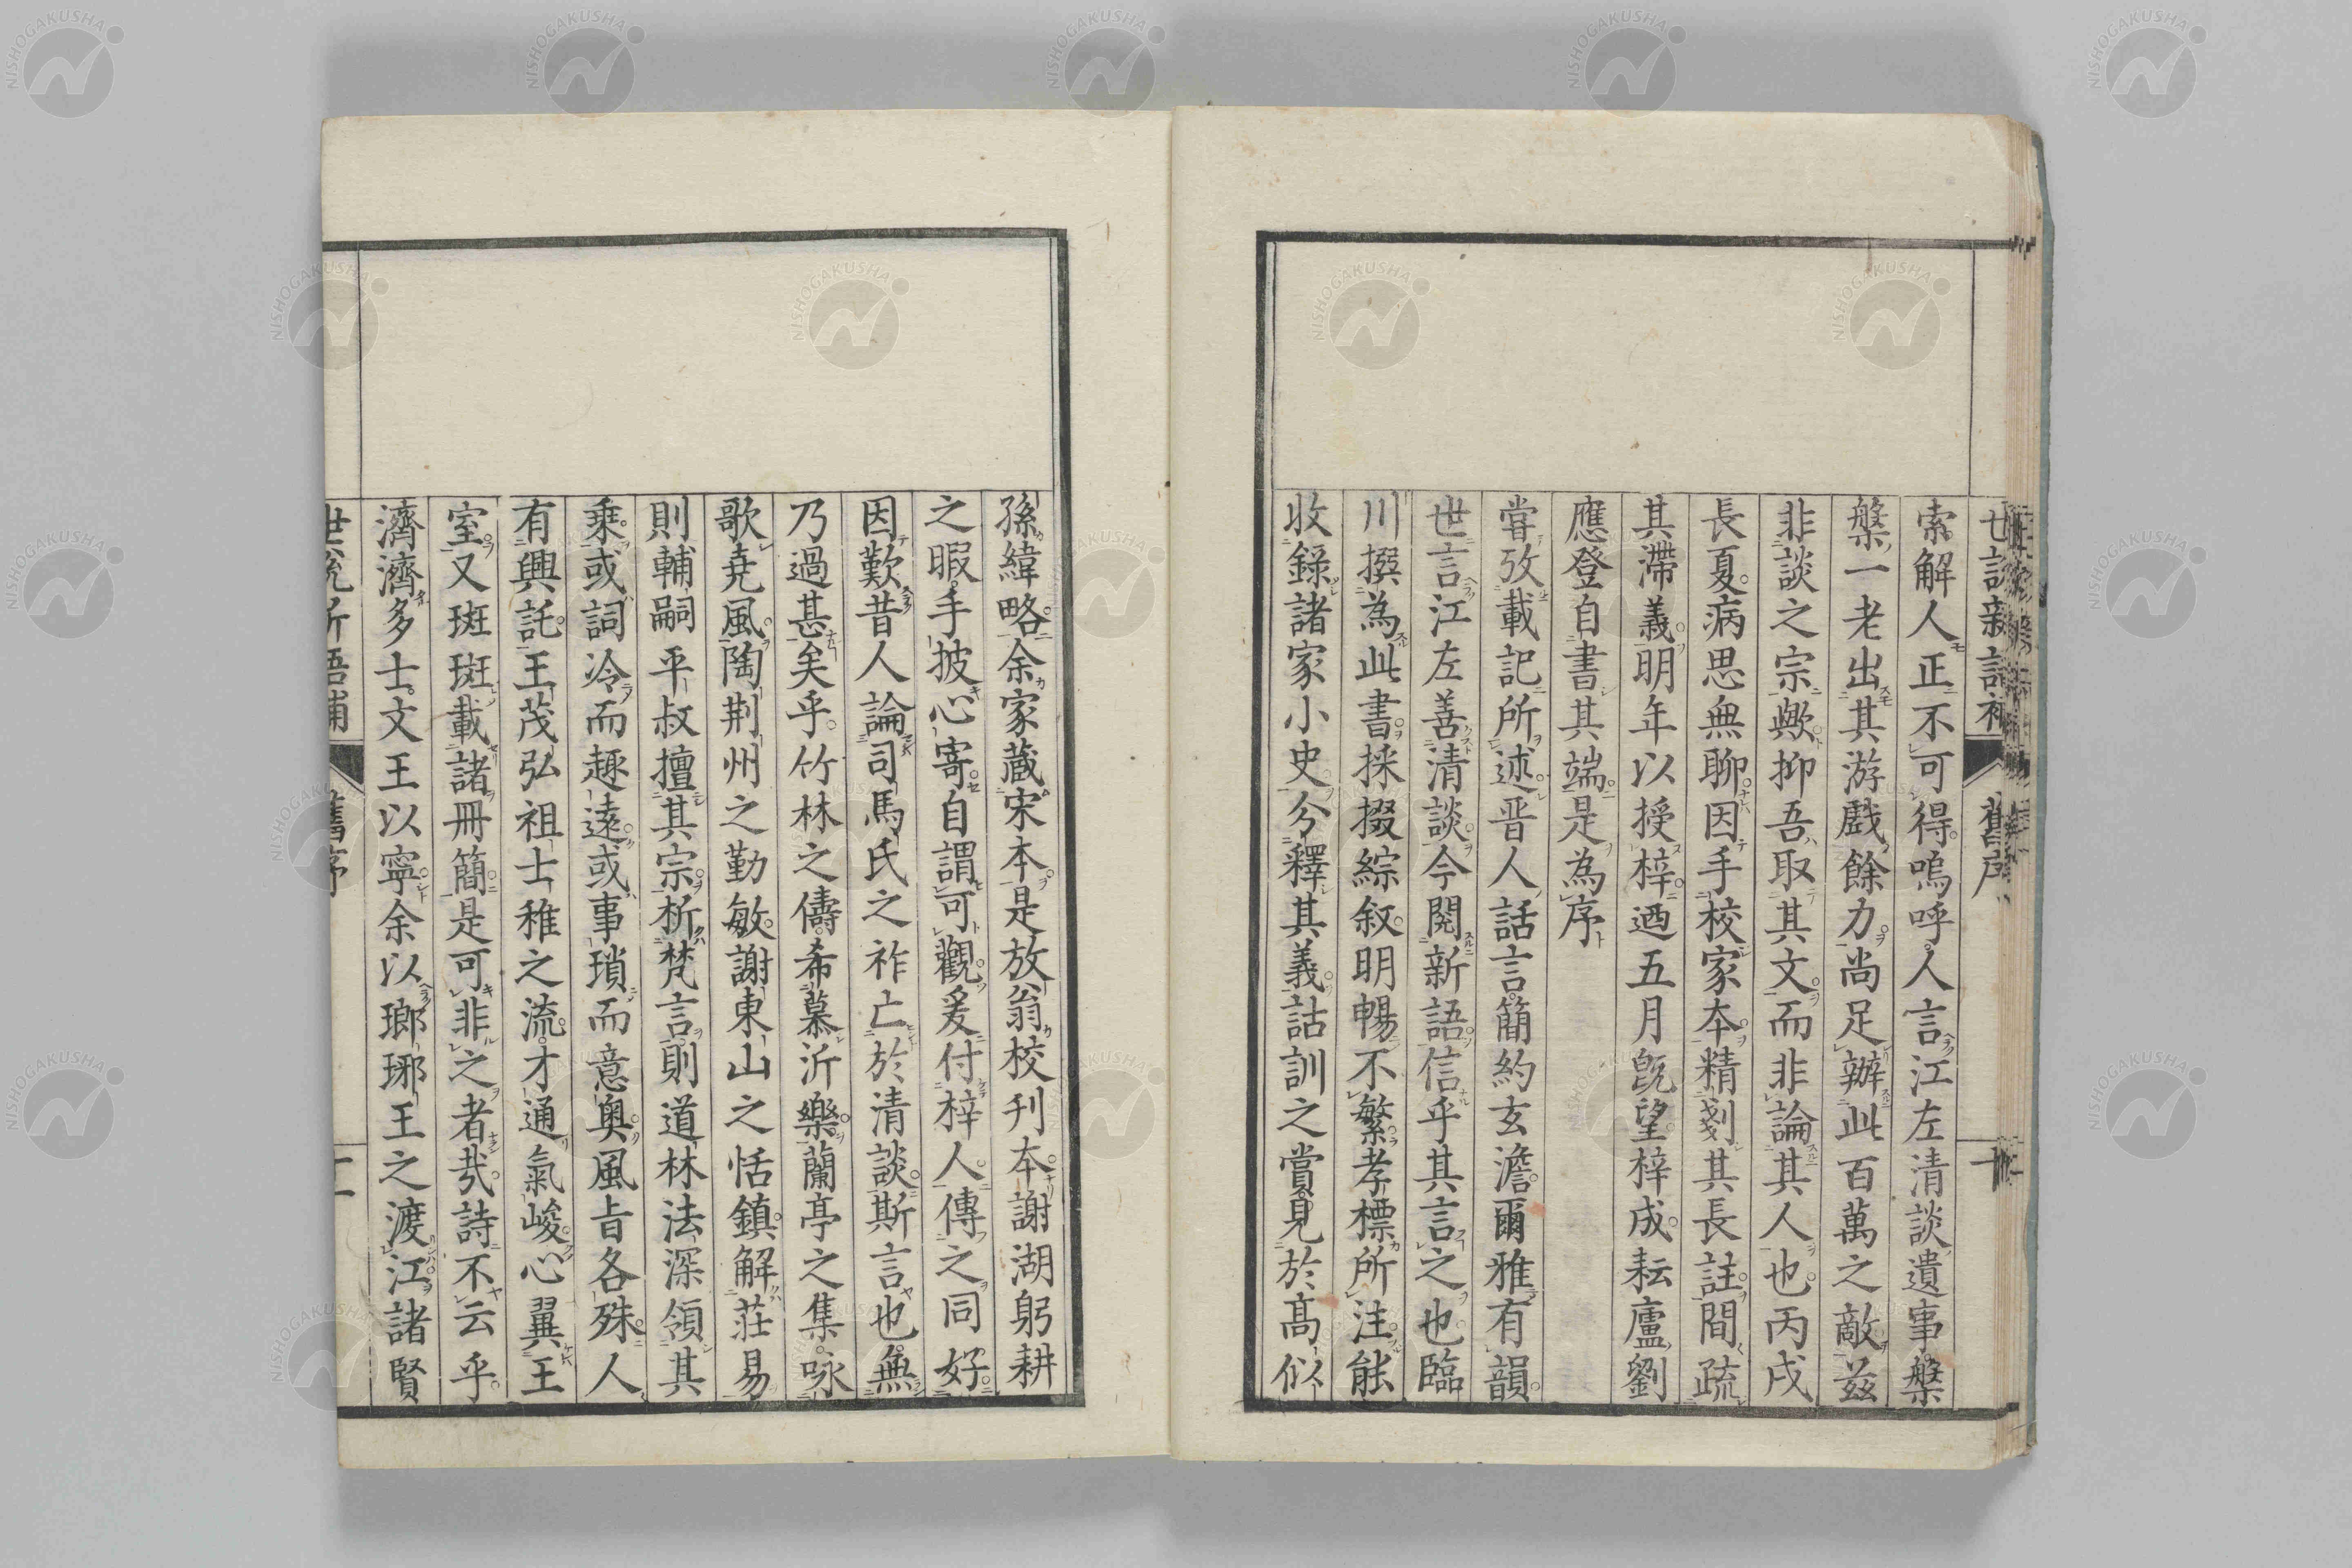 世說新語補 舊序 一
索解人正不可得嗚呼人言江左清談遺事槃
槃一老出其游戲餘力尚足辦此百萬之敵茲
非談之宗歟抑吾取其文而非論其人也丙戌
長夏病思無聊因手校家本精剗其長註間疏
其滯義明年以授梓迺五月旣望梓成耘廬劉
應登自書其端是為序
嘗攷載記所述晋人話言簡約玄澹爾雅有韻
世言江左善清談今閱新語信乎其言之也臨
川撰為此書採掇綜叙明暢不繁孝標所注能
收錄諸家小史分釋其義詁訓之賞見於高似
孫緯略余家藏宋本是放翁校刋本謝湖躬耕
之暇手披心寄自謂可觀爰付梓人傳之同好
因歎昔人論司馬氏之祚亡於清談斯言也無
乃過甚矣乎竹林之儔希慕沂樂蘭亭之集咏
歌堯風陶荆州之勤敏謝東山之恬鎮解莊易
則輔嗣平叔擅其宗析梵言則道林法深領其
乗或詞冷而趣遠或事瑣而意奥風旨各殊人
有興託王茂弘祖士稚之流才通氣峻心翼王
室又斑斑載諸冊簡是可非之者㢤詩不云乎
濟濟多士文王以寧余以瑯琊王之渡江諸賢
世說新語補 舊序
NISHOGAKUSHA